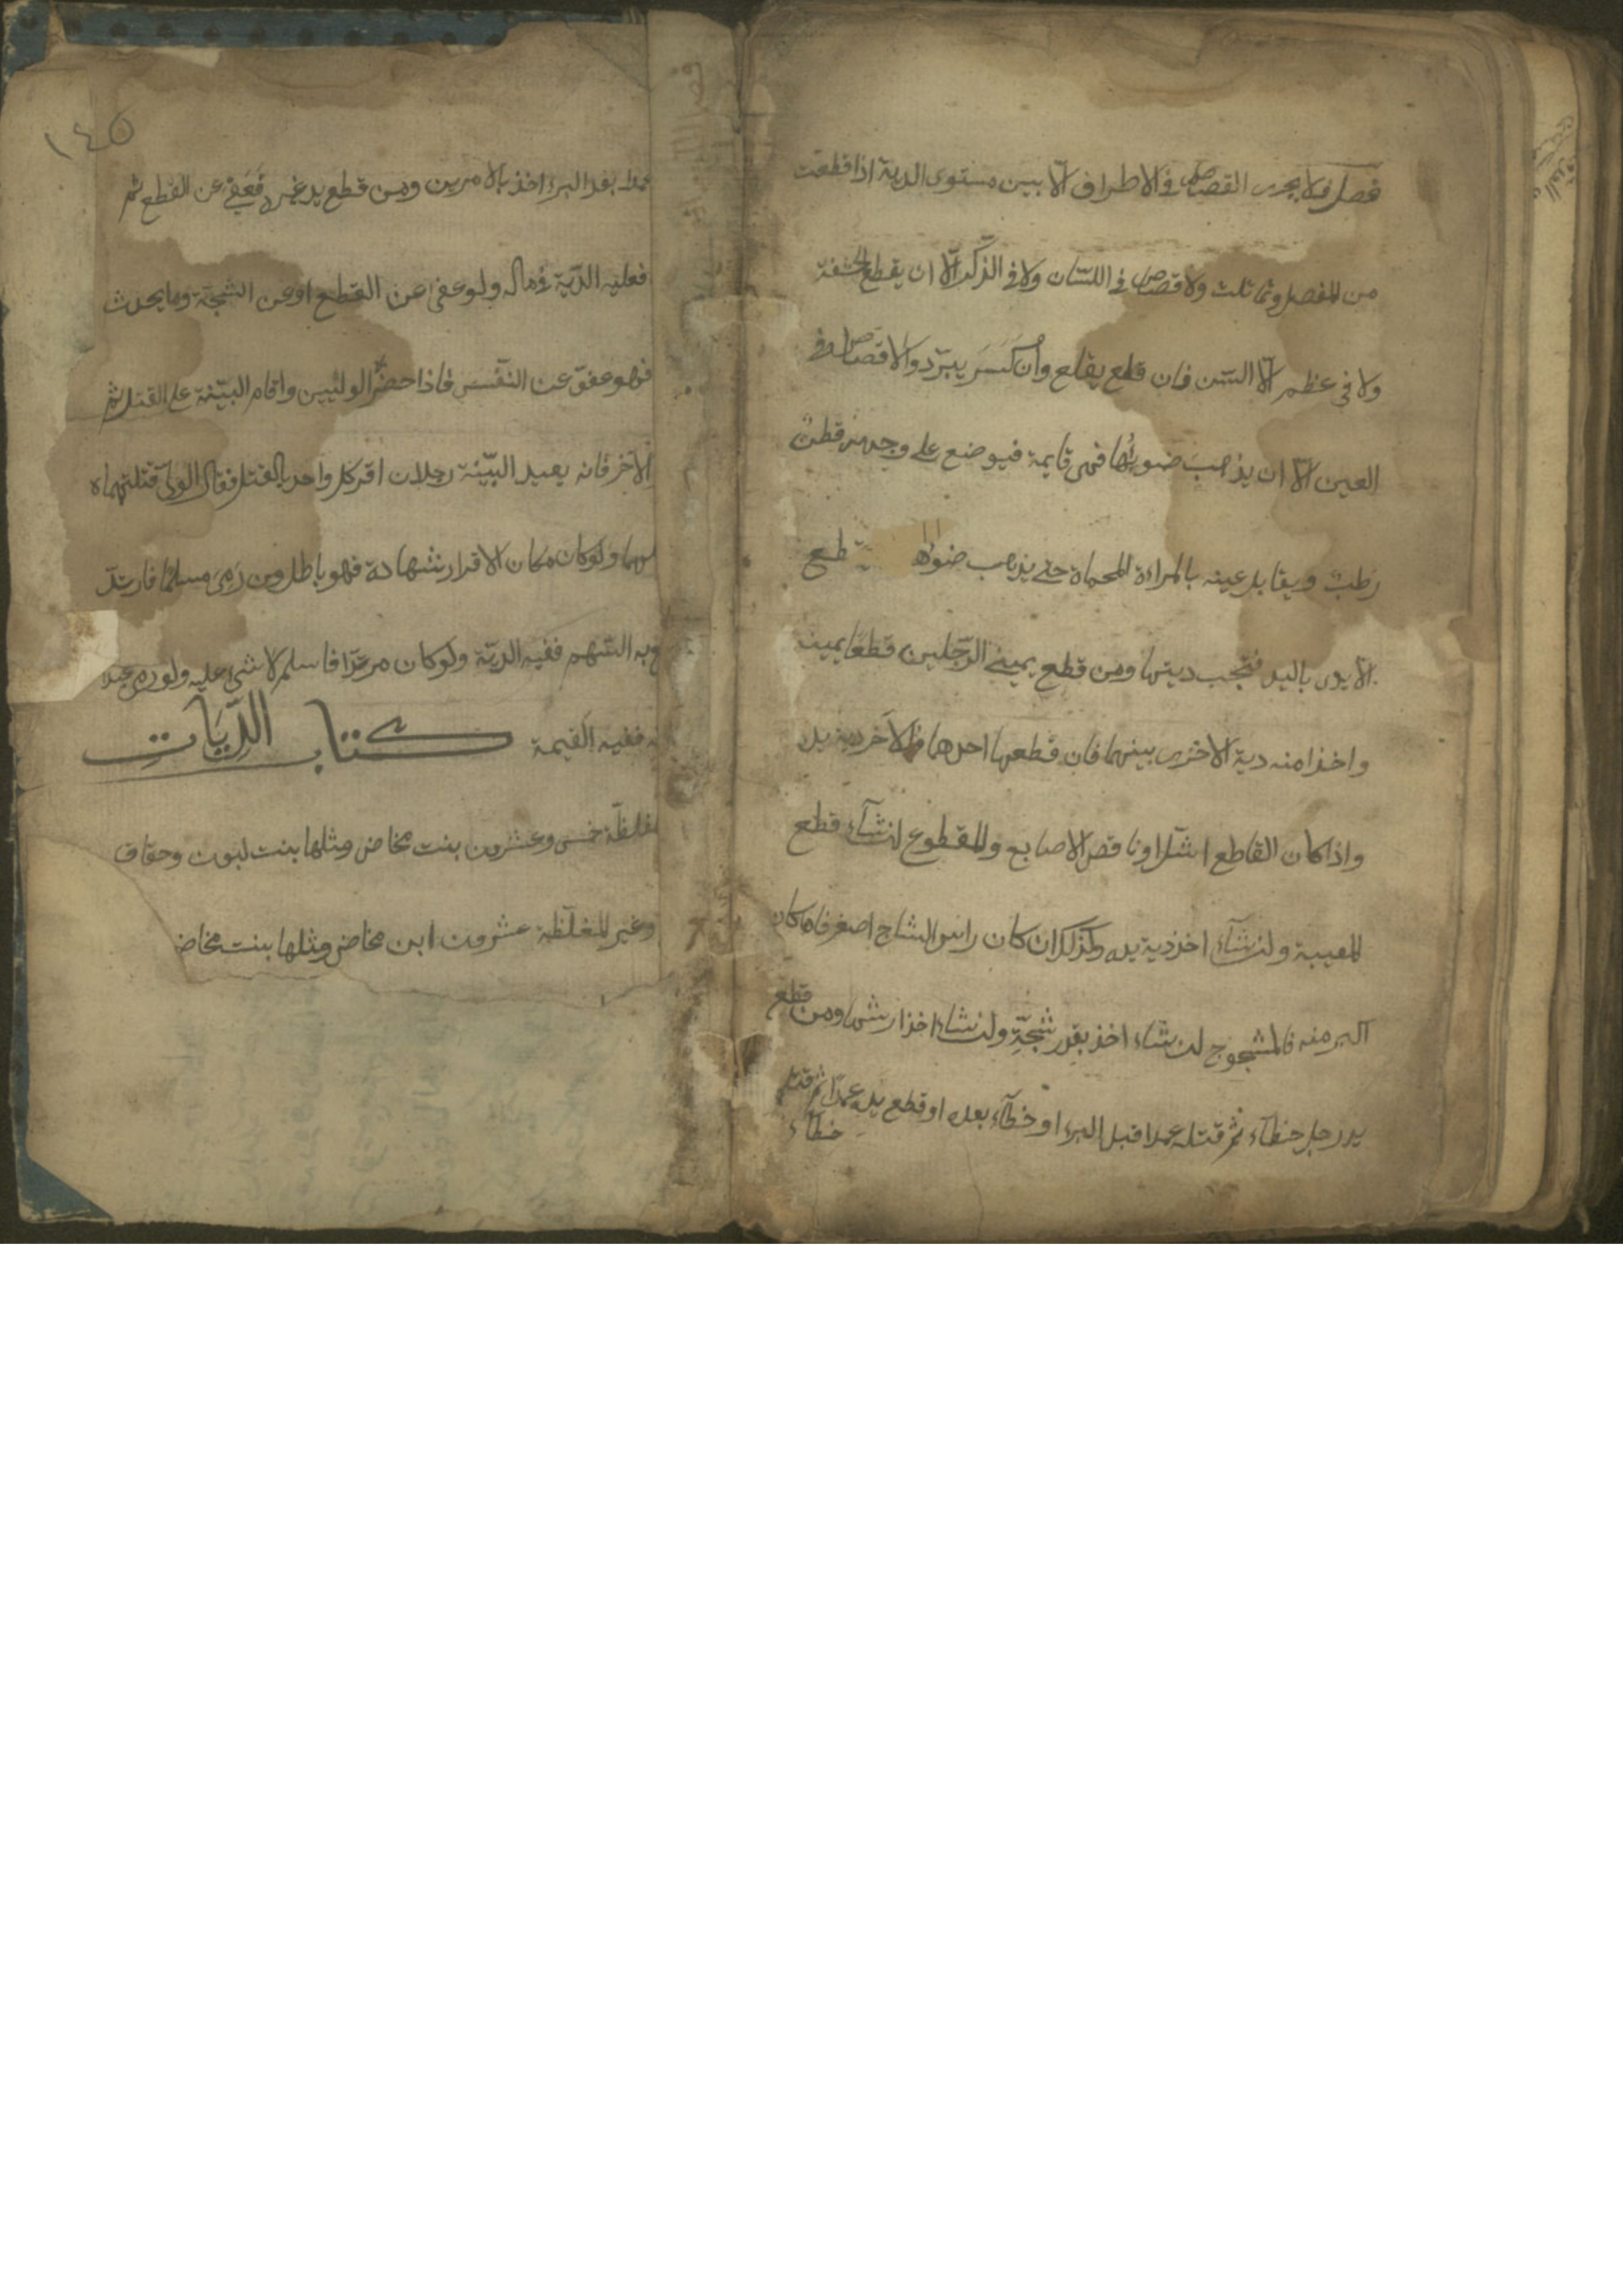 فصل ولا يجرى القصاص فى الاطراف الّا بين مستوى الدية اذا قطعت
من المفصل وتماثلت ولا قصاص فى اللسان ولا فى الذّكر الّا ان يقطع الحشفة
ولا فى عظم الّا السّن فان قلع يقلع وان كَسَرَ يبرّد ولا قصاص فى
العين الّا ان يذهبَ ضوءها فهى قايمة فيوضع على وجهه قطن
رطب ويقابل عينه بالمراءة المحماة حتى يذهب ضوءها تقطع
الايدى باليد فتجب ديتها ومن قطع يمينى الرّجلين قطعا يمينه
واخذا منه دية الاخرى بينهما فان قطعها احدهما فللآخر دية يد
واذا كان القاطع اشلّ او ناقص الاصابع وللمقطوع ان شآء قطع
المعيبة وان شآء اخذ دية يده وكذلك ان كان راس الشاج اصغر فاما كان
اكبر منه فالمشجوج ان شاء اخذ بقدر شجّتِه وان شاء اخذ ارشها ومن قطع
يد رجل خطآء ثم قتله عمدا قبل البرء او خطآء بعده او قطع يده عمدًا ثم قتله
خطآء
١٤٥
عمدا بعد البرء اخذ بالامرين ومن قطع يد غيره فَعَفى عن القطع ثم
فعليه الدّية فى ماله ولو عفى عن القطع او عن الشجّة وما يحدث
فهو عفوٌ عن النفس فاذا حضر الوليين واقام البيّنة على القتل ثم
الآخر فانه يعيد البيّنة رجلان اقر كل واحد بالقتل فقال الولى قتلتهماه
ولو كان مكان الاقرار شهادة فهو باطل ومن رَمِىَ مسلمًا فارتدّ
به السّهم ففيه الديّة ولو كان مرتدّا فاسلم لا شىء عليه ولو رمى عبدا
ففيه القيمة كتاب الدِّيَاتِ
مغلظّة خمس وعشرون بنت مخاض ومثلها بنت لبون وحقاق
وغير المغلّظة عشرون ابن مخاض ومثلها بنت مخاض